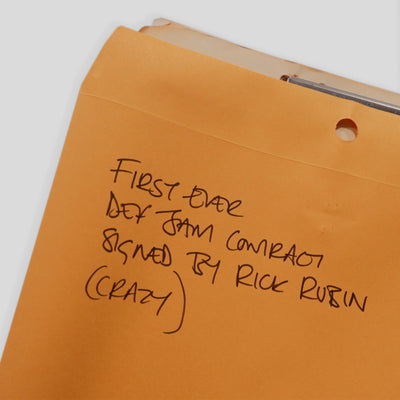 FIRST EVER
DEF JAM CONTRACT
SIGNED BY RICK RUBIN
(CRAZY)